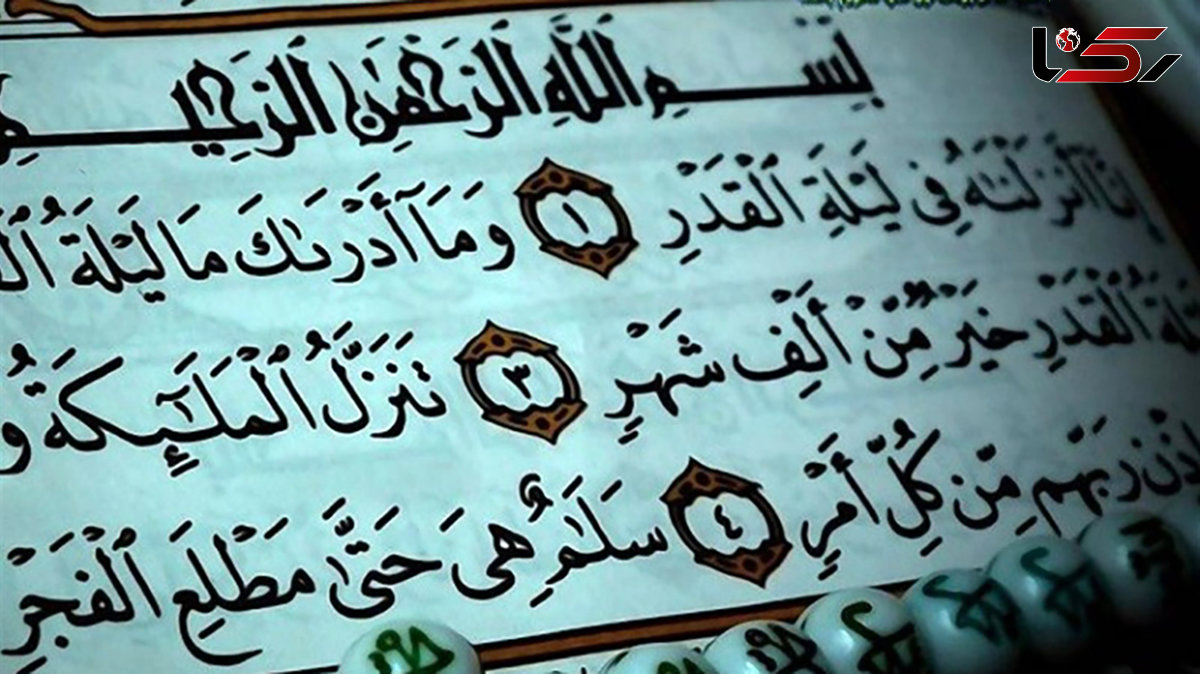 رکنا
بِسْمِ اللَّهِ الرَّحْمَٰنِ الرَّحِيمِ
إِنَّا أَنزَلْنَاهُ فِي لَيْلَةِ الْقَدْرِ ١ وَمَا أَدْرَىٰكَ مَا لَيْلَةُ
الْقَدْرِ خَيْرٌ مِّنْ أَلْفِ شَهْرٍ ٣ تَنَزَّلُ الْمَلَٰٓئِكَةُ وَ
رَبِّهِم مِّن كُلِّ أَمْرٍ ٤ سَلَٰمٌ هِيَ حَتَّىٰ مَطْلَعِ الْفَجْرِ